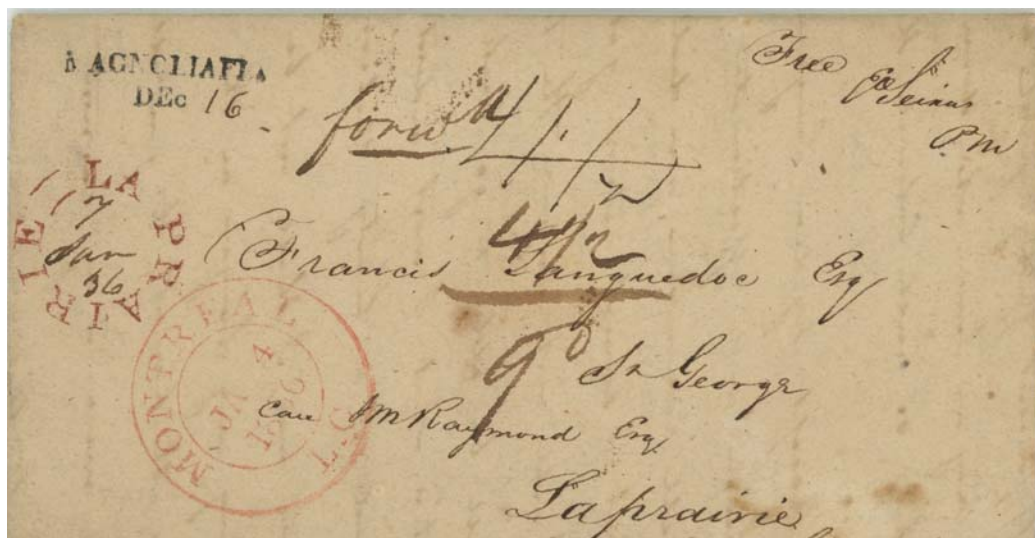 MAGNOLIA Fl.
DEC 16
Free
P M
forwd 4 1/2
LA PRAIRIE
7
Jan
36
4 1/2
Francis Languedoc Esq
9
St George
MONTREAL L.C.
JA 4
1836
Care M Raymond Esq
Laprairie